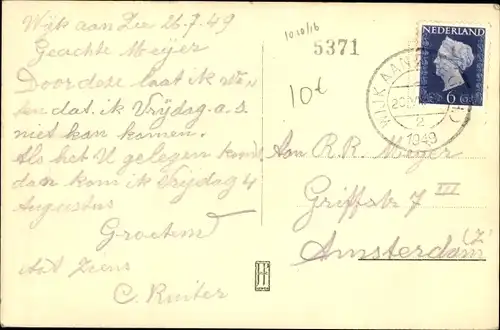 Wijk aan Zee 26.7.49
Geachte Meijer
Door deze laat ik we-
ten dat ik Vrijdag a.s
niet kan komen.
Als het U gelegen komt
dan kom ik Vrijdag 4
Augustus
Groetend
C. Ruiter
1010/16
5371
10d
NEDERLAND
6
WIJK AAN
1949
Aan R.R. Meyer
Griffstr 7 III
Amsterdam (Z)